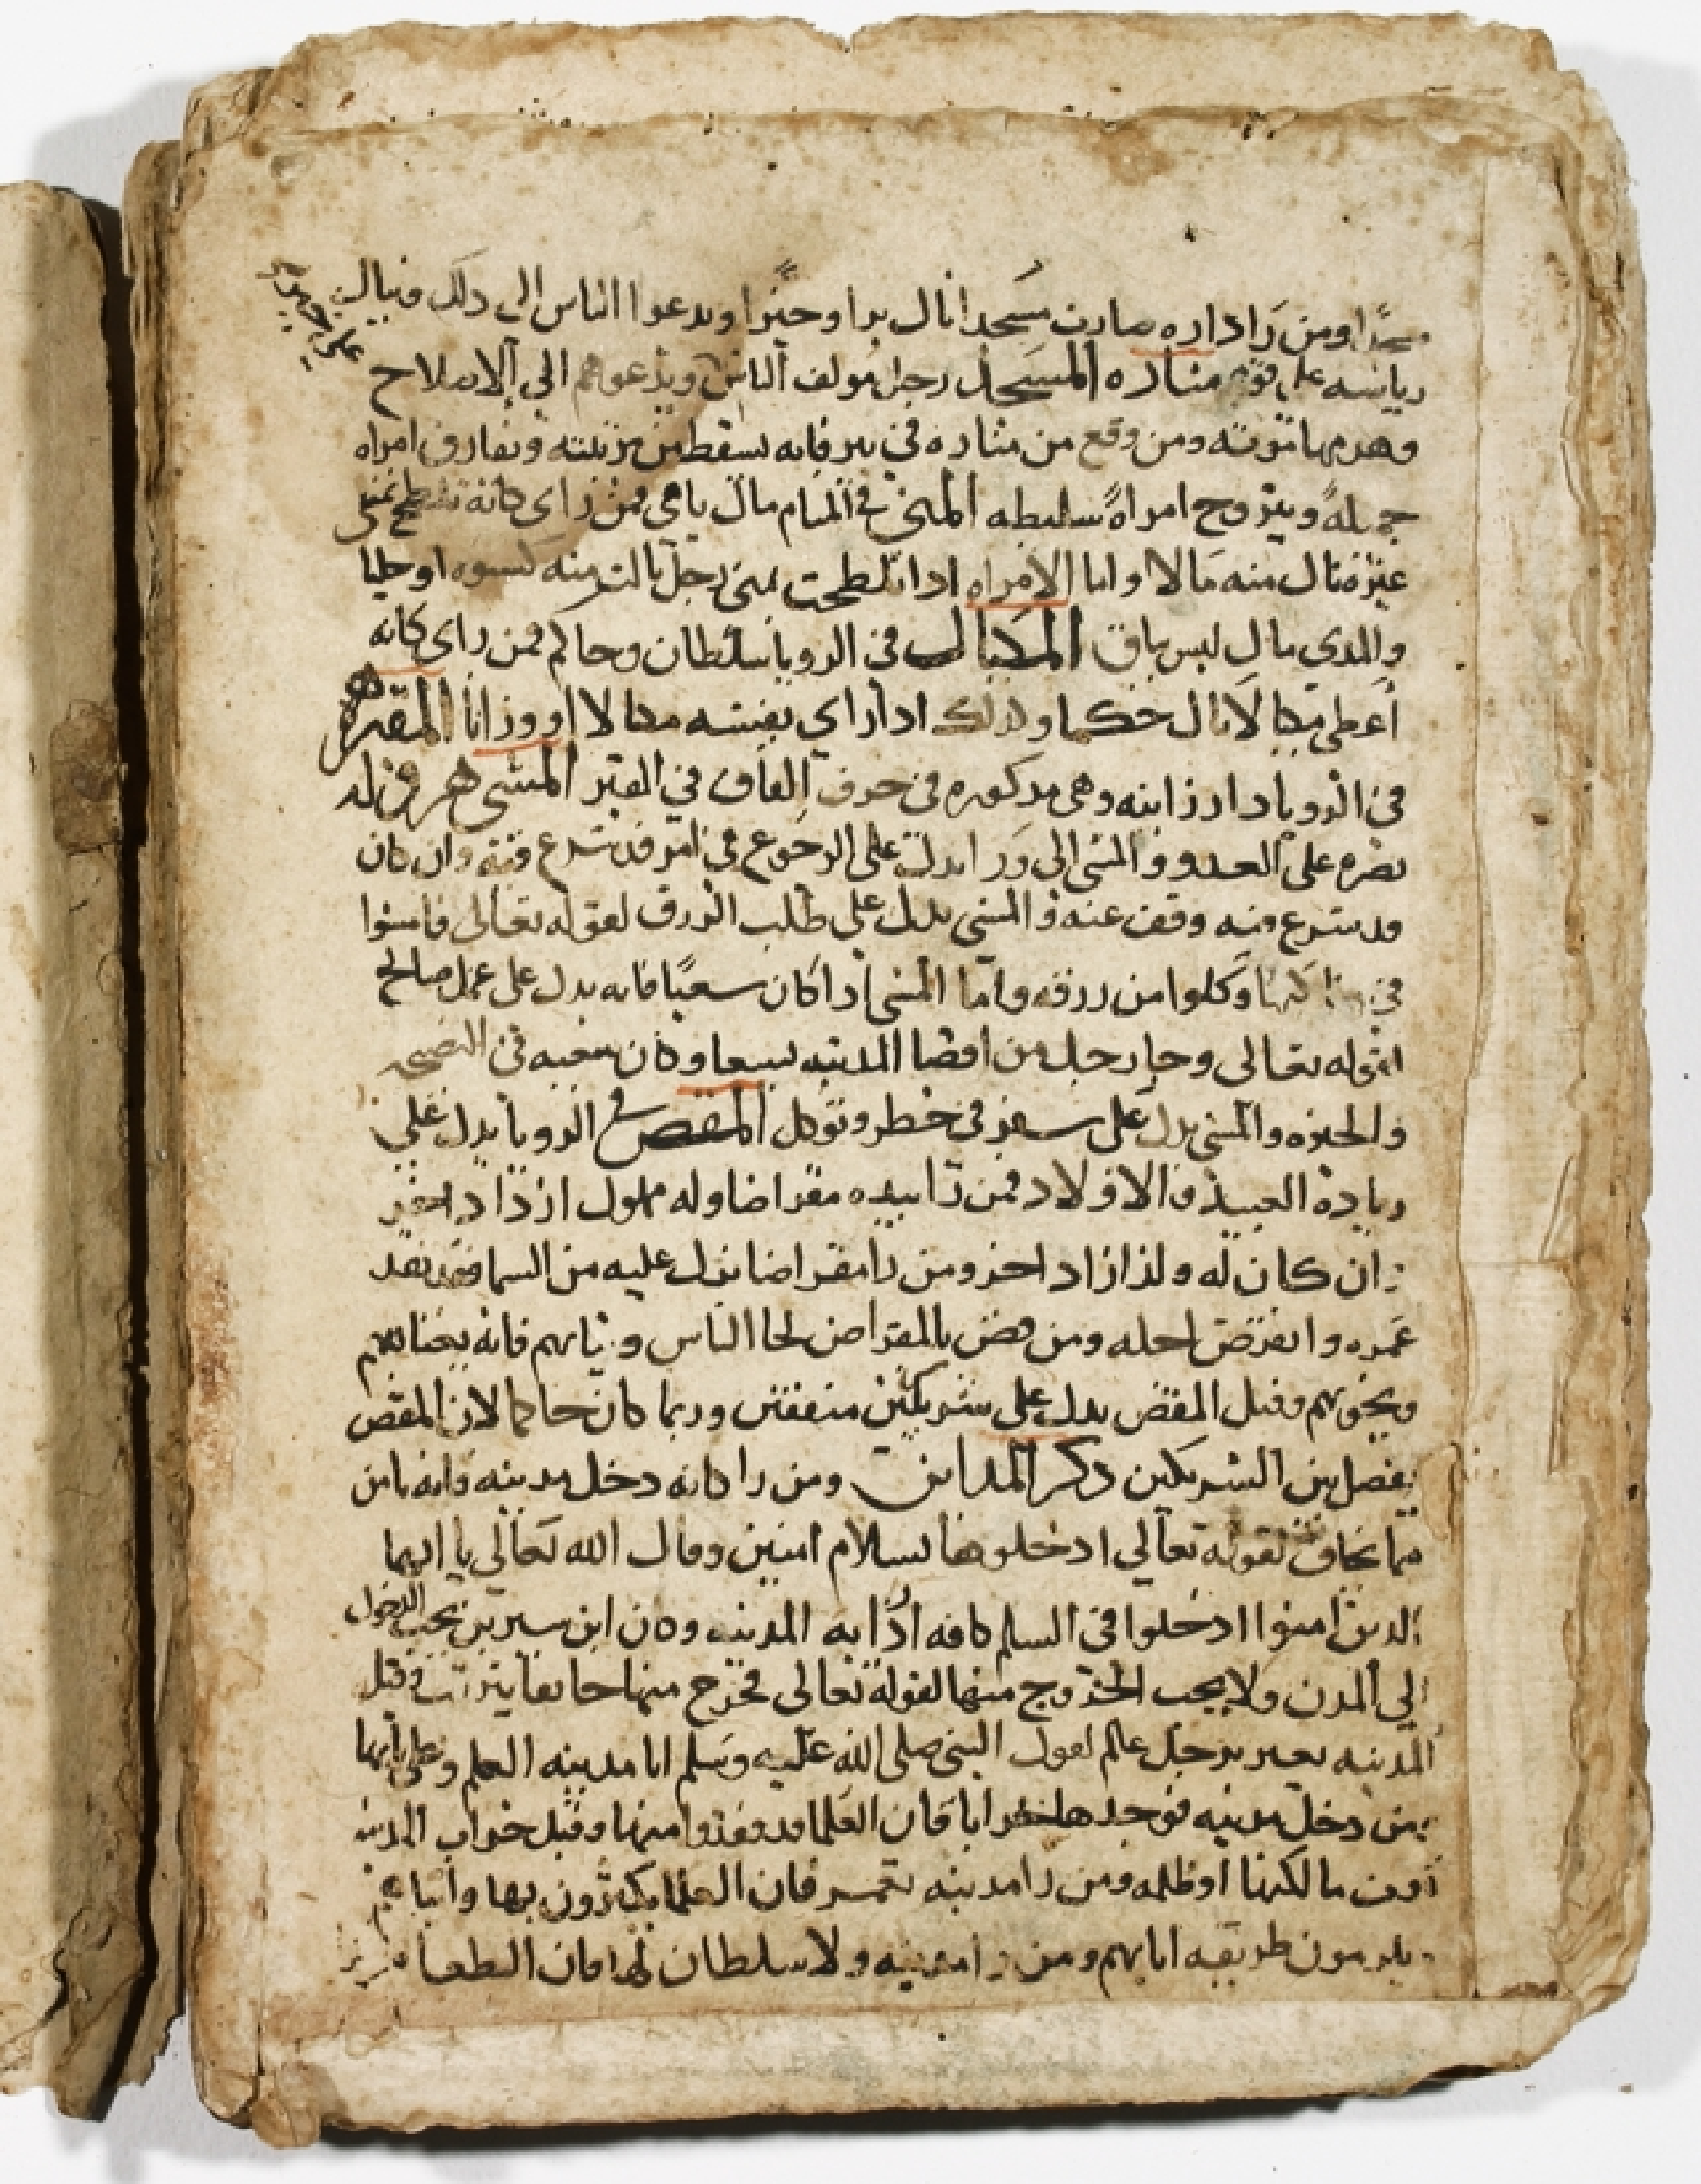 مسجدا ومن را داره صارت مسجدا نال برا وخيرا ويدعوا الناس الى دلك وينال
رياسه على قوم مناره المسجد رجل مولف الناس ويدعوهم الي الاصلاح
وهدمها موته ومن وقع من مناره في بير فانه يسقط من مرتبته ويفارق امراه
جميله ويتزوج امراة سليطه المني في المنام مال باقي فمن راى كانه تلطخ بمني
غيره نال منه مالا واما الامراه ادا تلطخت بمني رجل نالت منه كسوه او حليا
والمدي مال ليس باق المكيال في الرويا سلطان وحاكم فمن راى كانه
أعطي مكيالا نال حكما وكدلك ادا راي بفيته مكالا اووزانا المقبره
في الرويا دار زانيه وهي مدكوره في حرف القاف في القبر المشي هرولة
نصره على العدو والمشي الى ورا يدل على الرجوع في امر قد شرع فيه وان كان
قد شرع فيه وقف عنه والمشي يدل علي طلب الرزق لقوله تعالى فامشوا
في مناكبها وكلوا من رزقه واما المشي ادا كان سعيا فانه يدل على عمل صالح
لقوله تعالى وجا رجل من اقصا المدينه يسعا وكان سعيه في النصيحه
والخيره والمشي يدل على سفر في خطر وتوكل المقص في الرويا يدل علي
زيادة العبيد والاولاد فمن را بيده مقراضا وله مملوك ازداد اخر
وان كان له ولد ازاد اخر ومن را مقراضا نزل عليه من السما فقد نفد
عمره وانقرض اجله ومن قص بالمقراض لحا الناس وثيابهم فانه يغتابهم
ويخونهم وقيل المقص يدل على شريكين متفقين وربما كان حاكما لان المقص
يفصل بين الشريكين دكر المداين ومن را كانه دخل مدينه فانه يامن
مما يخاف لقوله تعالي ادخلوها بسلام امنين وقال الله تعالي يا ايها
الدين امنوا ادخلوا في السلم كافه ادا به المدينه وكان ابن سيرين يحب الدخول
الي المدن ولا يحب الخروج منها لقوله تعالى فخرج منها خايفا يترقب وقيل
المدينه تعبر برجل عالم لقول النبي صلى الله عليه وسلم انا مدينه العلم وعلي بابها
ومن دخل مدينه فوجدها خرابا فان العلما قد فقدوا منها وقيل خراب المدينه
موت مالكها او ظلمه ومن را مدينه تعمر فان العلما يكثرون بها وابناهم
يلزمون طريقه ابايهم ومن را مدينه ولا سلطان لها فان الطعام